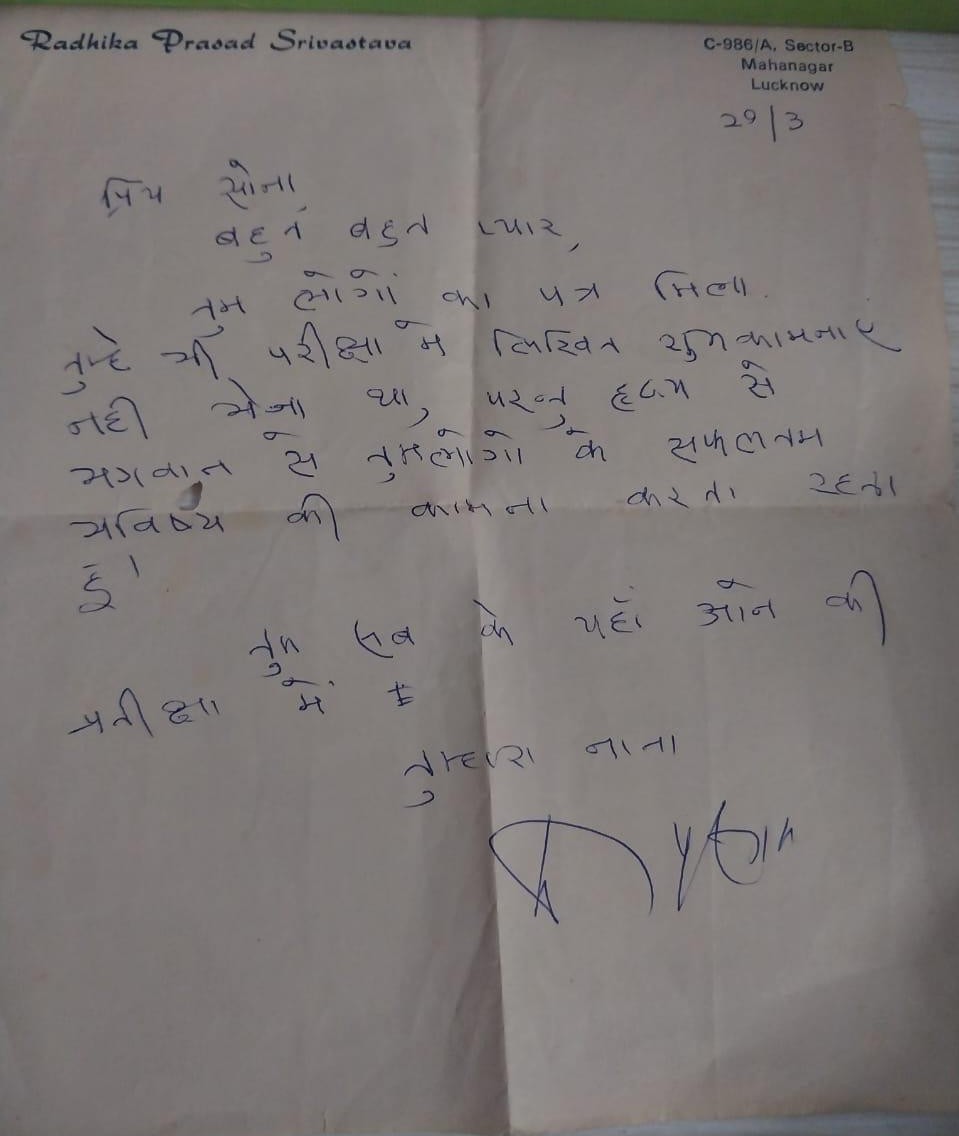 Radhika Prasad Srivastava
C-986/A, Sector-B
Mahanagar
Lucknow
29/3
प्रिय सोना
बहुत बहुत प्यार,
तुम लोगों का पत्र मिला.
तुम्हे भी परीक्षा में लिखित शुभकामनाए
नही भेजा था, परन्तु हृदय से
भगवान से तुमलोगो के सफलतम
भविष्य की कामना करता रहता
हूं।
तुम सब के यहाँ आने की
प्रतीक्षा में
तुम्हारा नाना